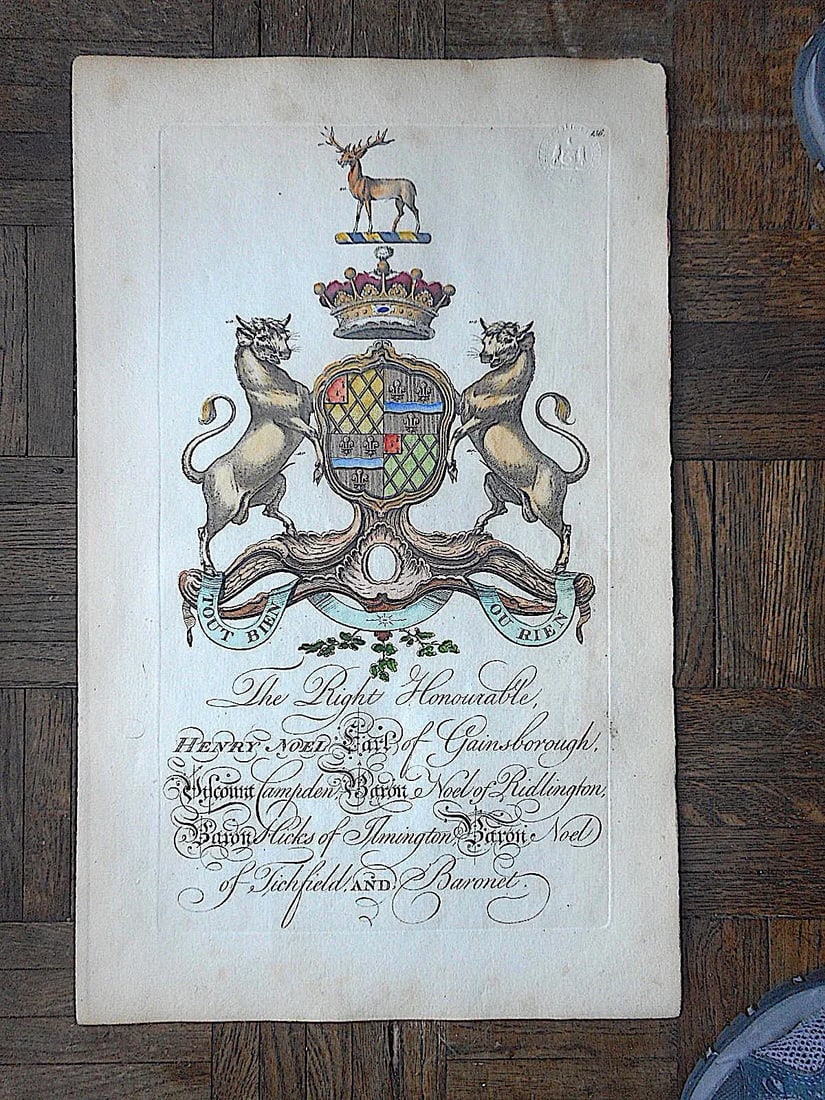 136.
TOUT BIEN OU RIEN
The Right Honourable,
HENRY NOEL Earl of Gainsborough,
Viscount Campden, Baron Noel of Ridlington,
Baron Hicks of Ilmington, Baron Noel
of Tichfield, AND, Baronet.